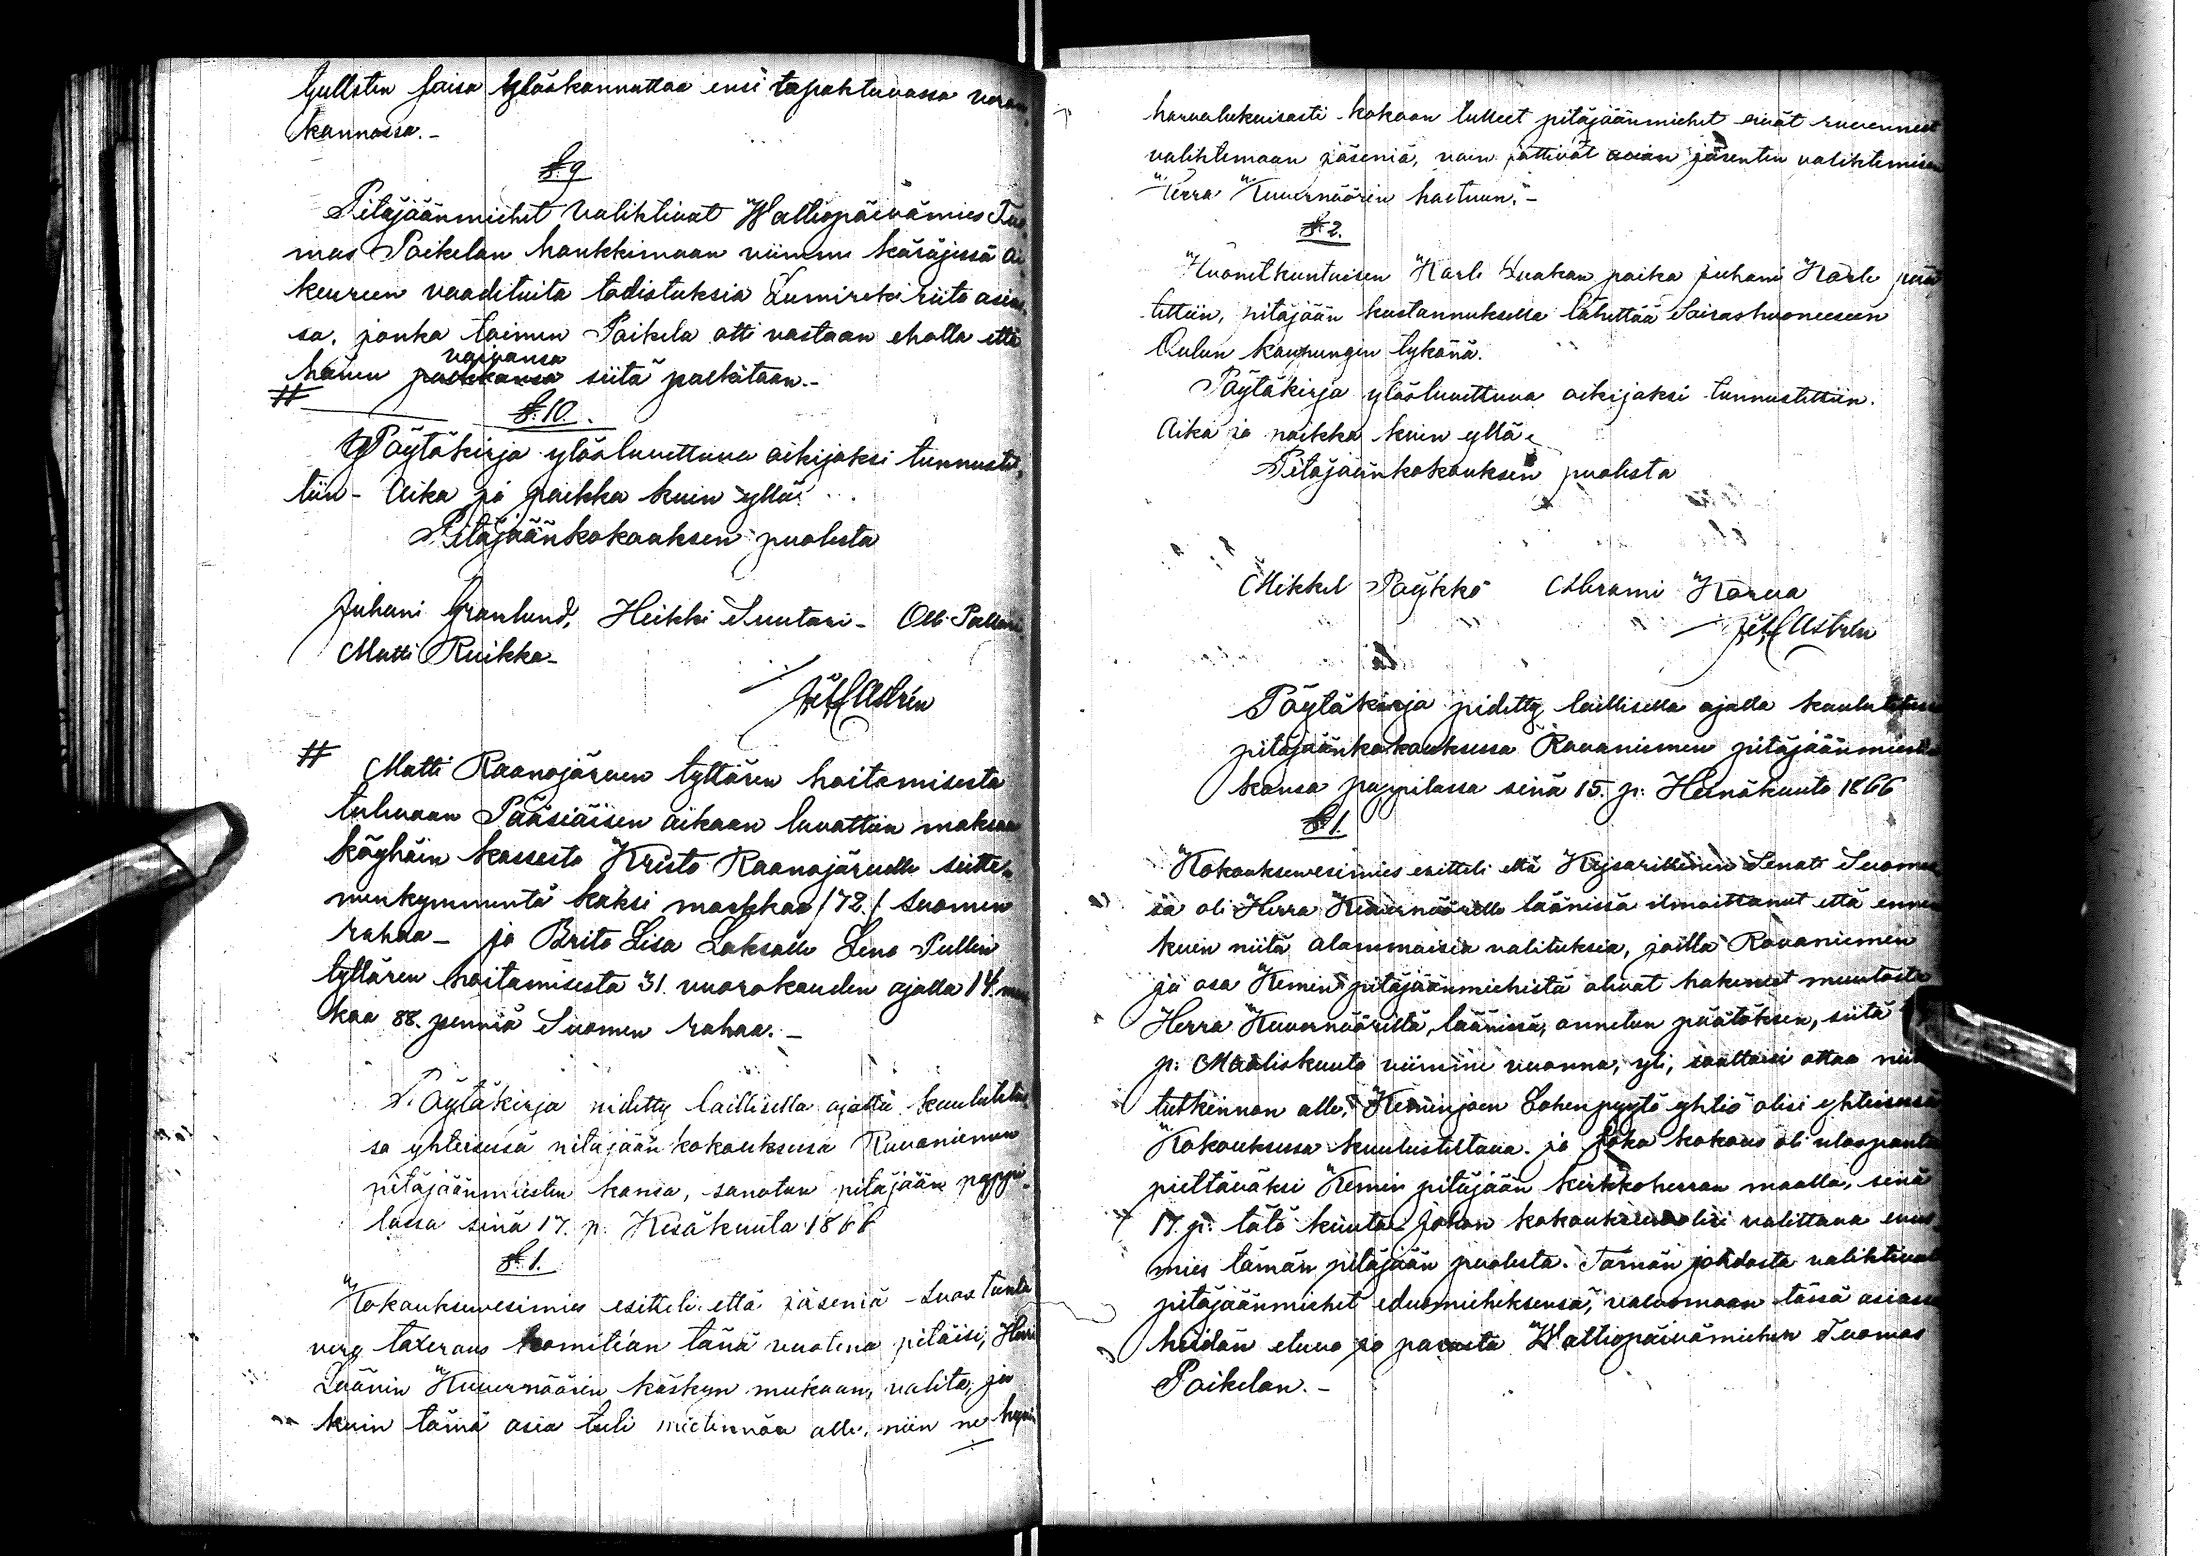 saisa ylöskannattaa ensi tapahtuvassa veron
kannossa.-
§. 9
Pitäjäänmiehet valihtivat Waltiopäivämies Tuo
mas Paikelan hankkimaan viimme käräjissä
vaadituita todistuksia Lumireki riita asias
sa, jonka toimen Paikela otti vastaan eholla että
vaivansa
hänen palkkansa siitä palkitaan.-
#
§. 10.
Pöytäkirja ylösluvettuna oikijaksi tunnustet
tiin - Aika ja paikka kuin yllä.
Pitäjäänkokouksen puolesta
Juhani Granlund, Heikki Suutari - Olli
Matti Ruikka-
# Matti Raanojärven tyttären hoitamisesta
tulevaan Pääsiäisen aikaan luvattiin maksaa
köyhäin kassasta Kristo Raanojärvelle seitte-
menkymmentä kaksi markkaa /72./ Suomen
rahaa - ja Brita Lisa Lena
tyttären hoitamisesta 31. vuorokauden ajalla 14. mar
kaa 88. penniä Suomen rahaa.-
Pöytäkirja pidetty laillisella ajalla kuulutetus
sa yhteisessä pitäjään kokouksessa Rovaniemen
pitäjäänmiesten kansa, sanotun pitäjään pappi-
lassa sinä 17. p. Kesäkuuta 1866
§. 1.
Kokouksenesimies esitteli että jäseniä - Suostunta
vero taxeraus komitéan tänä vuotena pitäisi, Herra
Läänin Kuvernöörin käskyn mukaan, valita, ja
kuin tämä asia tuli mietinnön alle, niin ne
harvalukuisesti kokoon tulleet pitäjäänmiehet eivät ruvenneet
valihtemaan jäseniä, vain jättivät asian jäsenten valihtemisen
Herra Kuvernöörin haltuun.-
§. 2.
Huonetkuntaisen Karle poika Juhani Karle pää
tettiin, pitäjään kustannuksella lähettää Sairashuoneeseen
Oulun kaupungin tykönä.
Pöytäkirja ylösluvettuna oikijaksi tunnustettiin.
Aika ja paikka kuin yllä.
Pitäjäänkokouksen puolesta
Mikkel Pöykkö Abrami Karva
Pöytäkirja pidetty laillisella ajalla kuulutetussa
pitäjäänkokouksessa Rovaniemen pitäjäänmiesten
kansa pappilassa sinä 15. p: Heinäkuuta 1866
§ 1.
Kokouksenesimies esitteli että Keisarillinen Senati Suomes
sa oli Herra Kuvernöörille läänissä ilmoittanut että ennen
kuin niitä alammaisia valituksia, joilla Rovaniemen
ja osa Kemin pitäjäänmiehistä olivat hakeneet muutosta
Herra Kuvernööriltä, läänissä, annetun päätöksen, siitä
p: Maaliskuuta viimme vuonna, yli, saattaisi ottaa niin
tutkinnon alle, Keminjoen Lohenpyytö yhtiö olisi yhteisessä
Kokouksessa kuulusteltava. ja Joka kokous oli ulospantu
piettäväksi Kemin pitäjään kirkkoherran maalla, sinä
17. p: tätä kuuta. Johon kokoukseen olisi valittava
mies tämän pitäjään puolesta. Tämän johdosta valihtivat
pitäjäänmiehet edusmieheksensä, valvomaan tässä asiassa
heidän etuva ja parasta Waltiopäivämiehen Tuomas
Paikelan.-